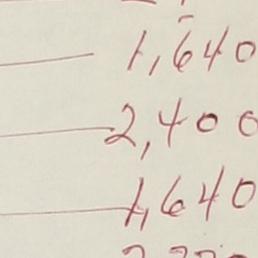 1,640
2,400
1,640